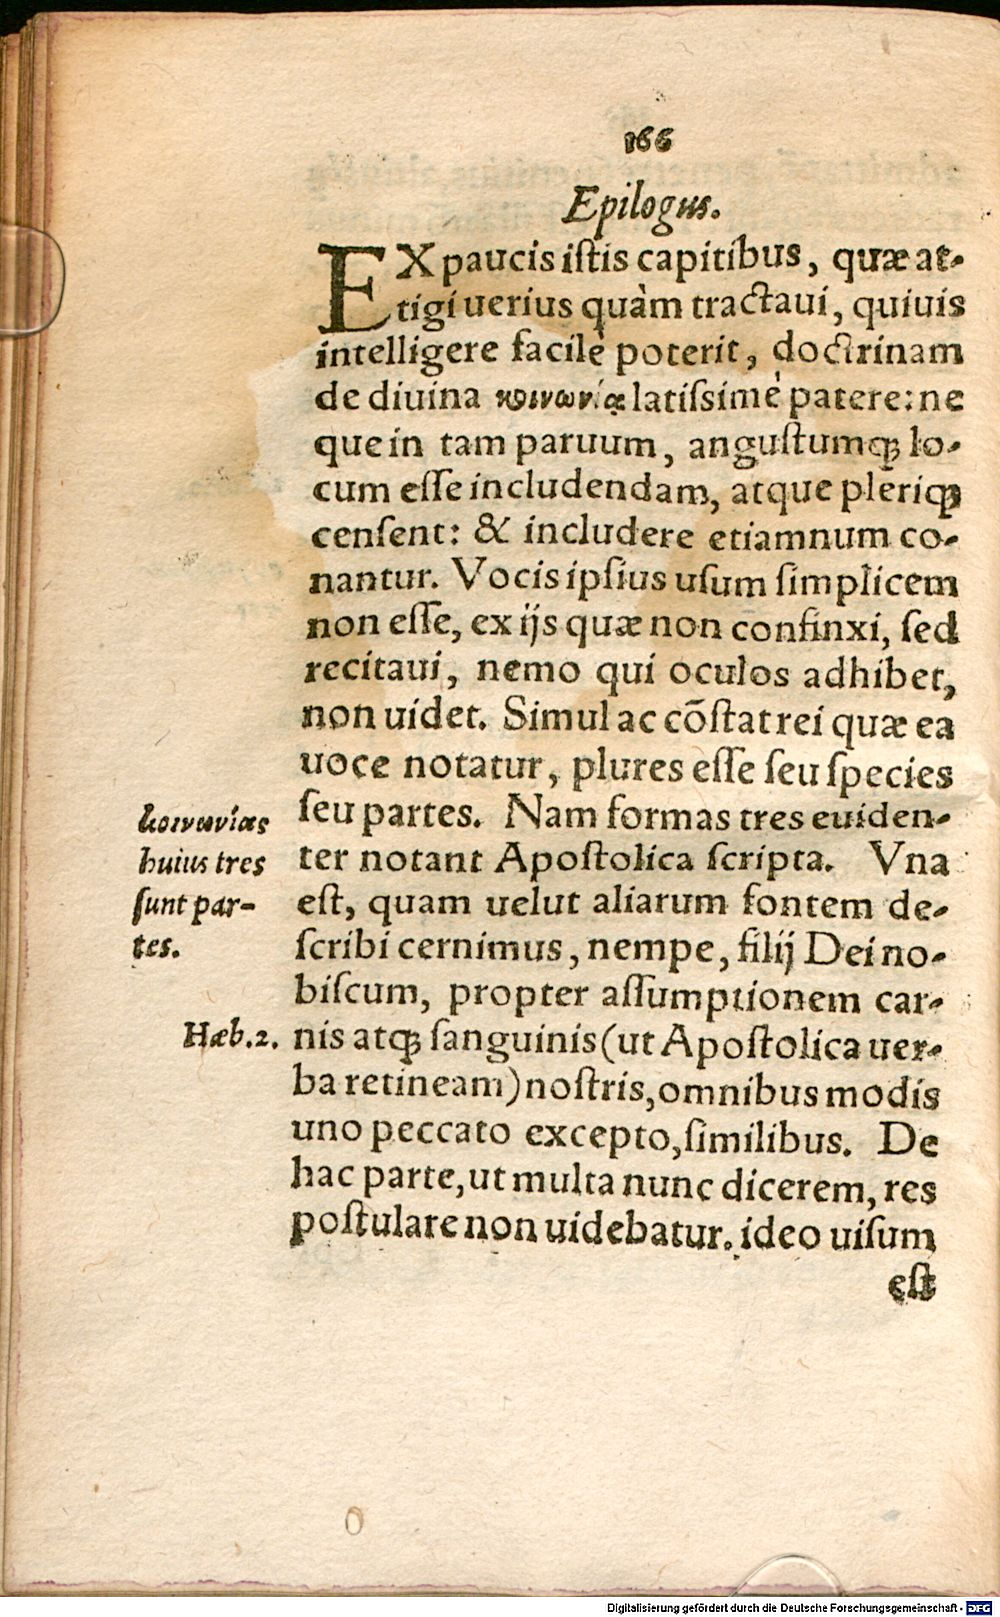 166
Epilogus.
EX paucis istis capitibus, quæ at-
tigi uerius quàm tractaui, quiuis
intelligere facilè poterit, doctrinam
de diuina κοινωνίᾳ latissimè patere: ne
que in tam paruum, angustumq; lo-
cum esse includendam, atque pleriq;
censent: & includere etiamnum co-
nantur. Vocis ipsius usum simplicem
non esse, ex ijs quæ non confinxi, sed
recitaui, nemo qui oculos adhibet,
non uidet. Simul ac cōstat rei quæ ea
uoce notatur, plures esse seu species
seu partes. Nam formas tres euiden-
ter notant Apostolica scripta. Vna
est, quam uelut aliarum fontem de-
scribi cernimus, nempe, filij Dei no-
biscum, propter assumptionem car-
nis atq; sanguinis (ut Apostolica uer-
ba retineam) nostris, omnibus modis
uno peccato excepto, similibus. De
hac parte, ut multa nunc dicerem, res
postulare non uidebatur. ideo uisum
est
κοινωνίας
huius tres
sunt par-
tes.
Hæb.2.
Digitalisierung gefördert durch die Deutsche Forschungsgemeinschaft - DFG